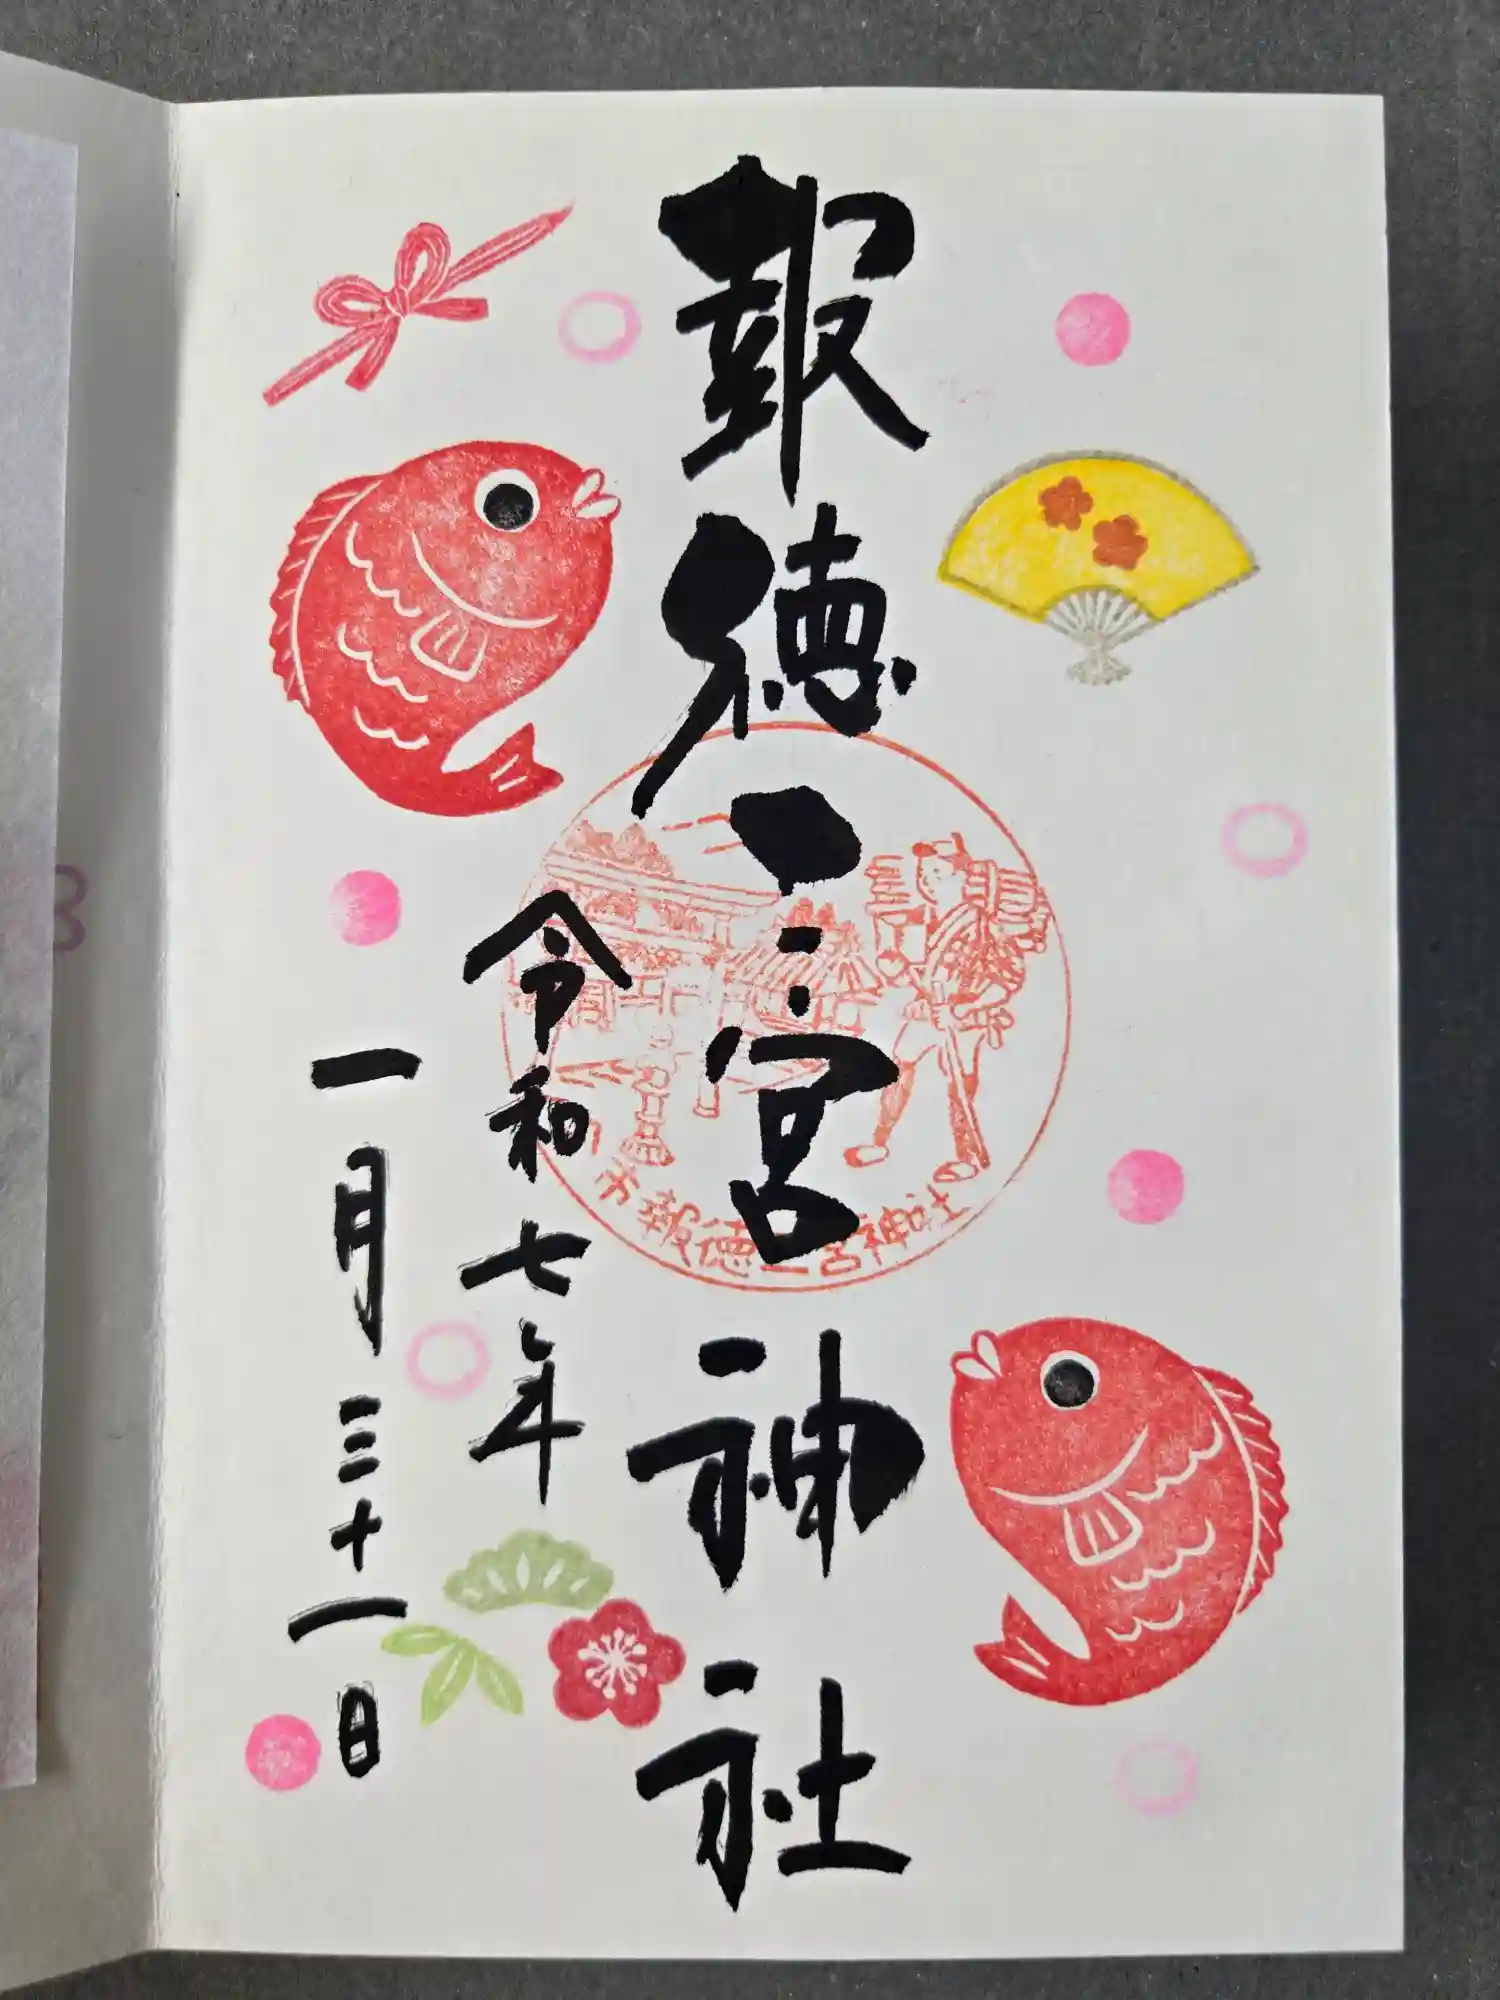 報徳二宮神社
令和七年
一月三十一日
市報徳二宮神社